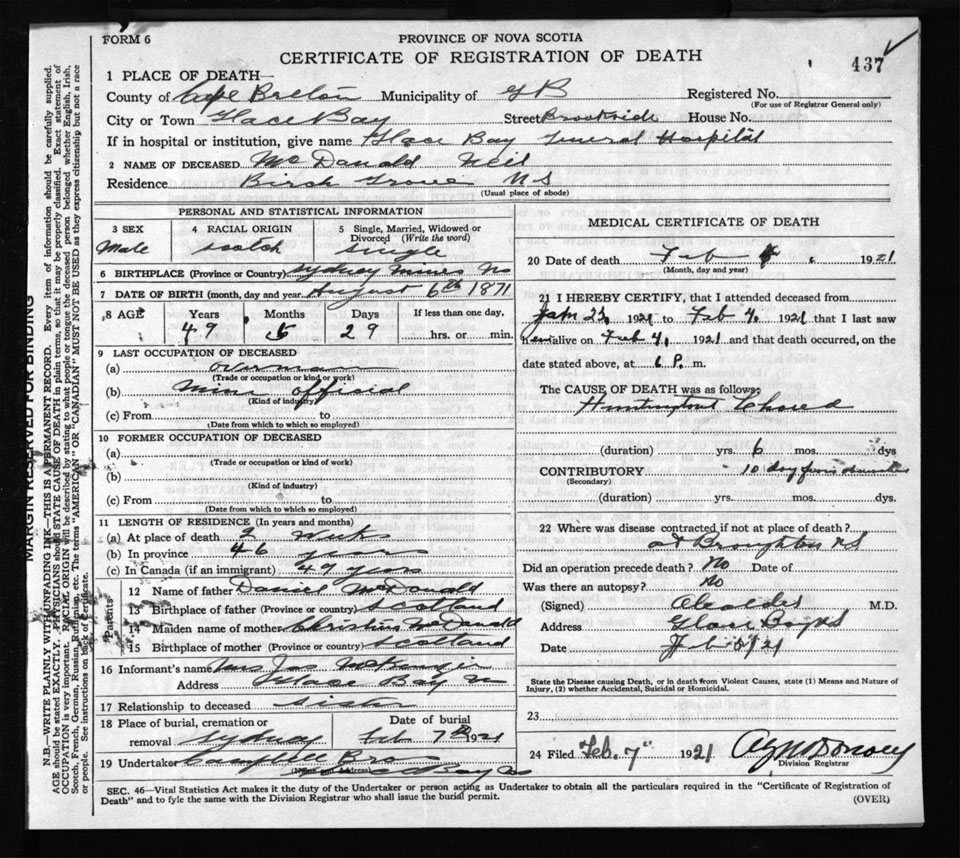 FORM 6
PROVINCE OF NOVA SCOTIA
CERTIFICATE OF REGISTRATION OF DEATH
437
1 PLACE OF DEATH—
County of Cape Breton Municipality of G B Registered No.
(For use of Registrar General only)
City or Town Glace Bay Street Brookside House No.
If in hospital or institution, give name Glace Bay General Hospital
2 NAME OF DECEASED McDonald Neil
Residence Birch Grove N S
(Usual place of abode)
PERSONAL AND STATISTICAL INFORMATION
3 SEX 4 RACIAL ORIGIN 5 Single, Married, Widowed or Divorced (Write the word)
Male Scotch Single
6 BIRTHPLACE (Province or Country) Sydney Mines NS
7 DATE OF BIRTH (month, day and year August 6th 1871
8 AGE Years Months Days If less than one day,
49 5 29 hrs. or min.
9 LAST OCCUPATION OF DECEASED
(a) Overman
(Trade or occupation or kind or work)
(b) Mine official
(Kind of industry)
(c) From to
(Date from which to which so employed)
10 FORMER OCCUPATION OF DECEASED
(a)
(Trade or occupation or kind of work)
(b)
(Kind of industry)
(c) From to
(Date from which to which so employed)
11 LENGTH OF RESIDENCE (In years and months)
(a) At place of death 2 weeks
(b) In province 46 years
(c) In Canada (if an immigrant) 49 years
Parents
12 Name of father Daniel McDonald
13 Birthplace of father (Province or country) Scotland
14 Maiden name of mother Christina McDonald
15 Birthplace of mother (Province or country) Scotland
16 Informant's name Mrs Jas McKenzie
Address Glace Bay
17 Relationship to deceased sister
18 Place of burial, cremation or removal Sydney Date of burial Feb 7th 1921
19 Undertaker Campbell Bros
Glace Bay NS
MEDICAL CERTIFICATE OF DEATH
20 Date of death Feb 1921
(Month, day and year)
21 I HEREBY CERTIFY, that I attended deceased from
Jan 23, 1921 to Feb 4, 1921 that I last saw
him alive on Feb 4, 1921 and that death occurred, on the
date stated above, at 6 P. m.
The CAUSE OF DEATH was as follows:
Huntingtons Chorea
(duration) yrs. 6 mos. dys
CONTRIBUTORY 10 day from
(Secondary)
(duration) yrs. mos. dys.
22 Where was disease contracted if not at place of death?
at Broughton NS
Did an operation precede death? No Date of
Was there an autopsy? No
(Signed) M.D.
Address Glace Bay NS
Date Feb 5/21
State the Disease causing Death, or in death from Violent Causes, state (1) Means and Nature of
Injury, (2) whether Accidental, Suicidal or Homicidal.
23
24 Filed Feb. 7" 1921
Division Registrar
SEC. 46—Vital Statistics Act makes it the duty of the Undertaker or person acting as Undertaker to obtain all the particulars required in the "Certificate of Registration of
Death" and to fyle the same with the Division Registrar who shall issue the burial permit.
(OVER)
MARGIN RESERVED FOR BINDING
N.B.—WRITE PLAINLY WITH UNFADING INK—THIS IS A PERMANENT RECORD. Every item of information should be carefully supplied.
AGE should be stated EXACTLY. PHYSICIANS should STATE CAUSE OF DEATH in plain terms, so that it may be properly classified. Exact statement of
OCCUPATION is very important. RACIAL ORIGIN will be described by stating to what people or tongue the deceased person belonged whether English, Irish,
Scotch, French, German, Russian, Ruthenian, etc. The terms "AMERICAN" OR "CANADIAN" MUST NOT BE USED as they express citizenship but not a race
or people. See instructions on back of Certificate.